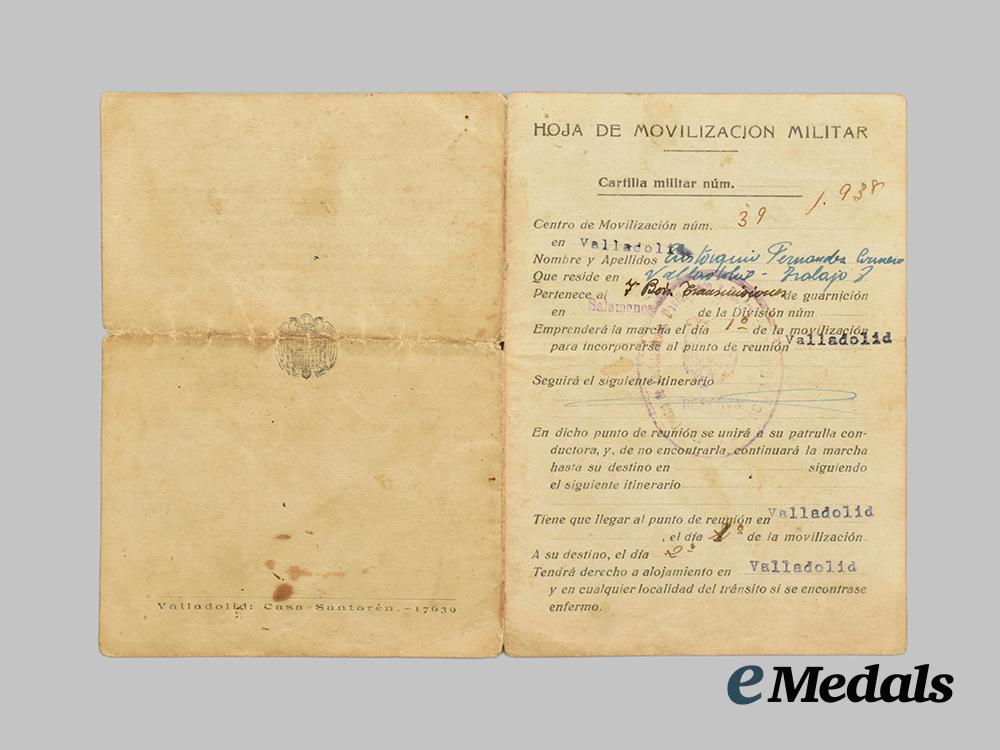 Valladolid: Casa Santarén.-17639
HOJA DE MOVILIZACIÓN MILITAR
Cartilla militar núm.
1.938
Centro de Movilización núm. 39
en Valladolid
Nombre y Apellidos Fernandez
Que reside en Valladolid - Trabajo
Pertenece al 7º Bon. Transmisiones de guarnición
en Salamanca de la División núm.
Emprenderá la marcha el día 1º de la movilización
para incorporarse al punto de reunión Valladolid
Seguirá el siguiente itinerario
RESERVA
En dicho punto de reunión se unirá a su patrulla con-
ductora, y, de no encontrarla, continuará la marcha
hasta su destino en siguiendo
el siguiente itinerario
Tiene que llegar al punto de reunión en Valladolid
, el día 1º de la movilización.
A su destino, el día 2º
Tendrá derecho a alojamiento en Valladolid
y en cualquier localidad del tránsito si se encontrase
enfermo.
eMedals